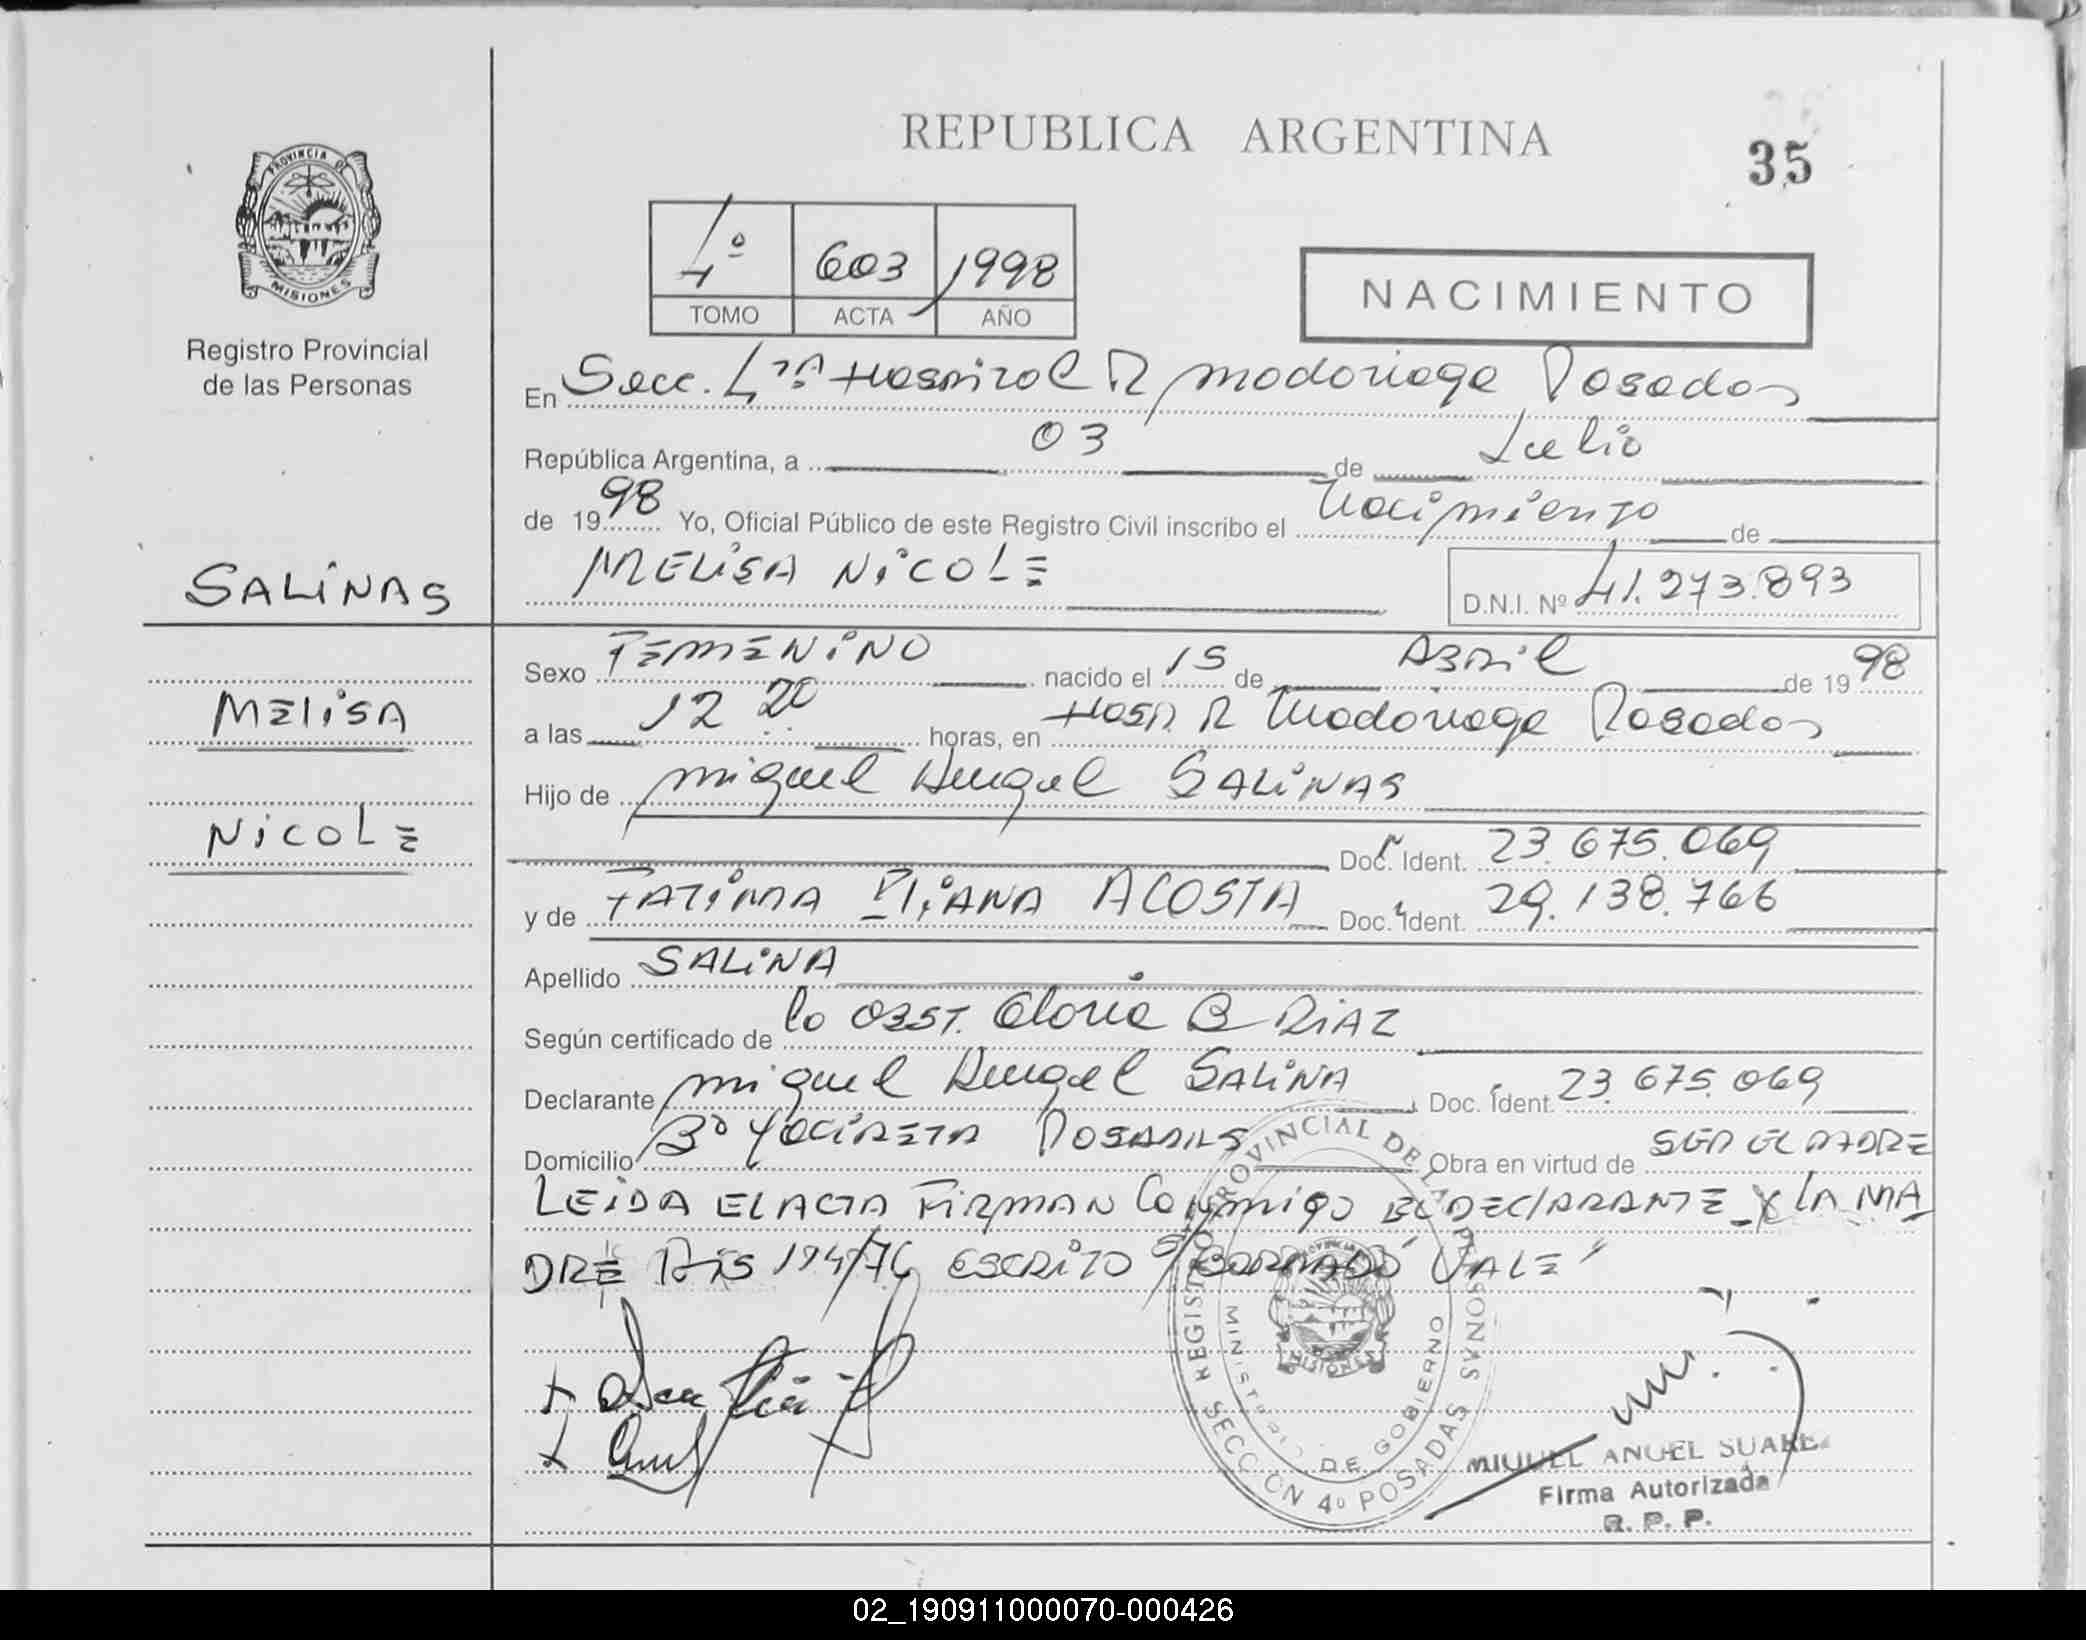 REPUBLICA ARGENTINA
35
PROVINCIA DE
MISIONES
Registro Provincial
de las Personas
4º 603 1998
TOMO ACTA AÑO
NACIMIENTO
En Secc. 4ta Hospital R Madariaga Posadas
República Argentina, a 03 de Julio
de 1998 Yo, Oficial Público de este Registro Civil inscribo el Nacimiento de
MELISA NICOLE D.N.I. Nº 41.273.893
SALINAS
MELISA
NICOLE
Sexo FEMENINO nacido el 15 de ABRIL de 1998
a las 12 20 horas, en Hosp. R Madariaga Posadas
Hijo de Miguel Angel SALINAS
Doc. Ident. 23.675.069
y de FATIMA ACOSTA Doc. Ident. 29.138.766
Apellido SALINA
Según certificado de la OBST. Gloria B DIAZ
Declarante Miguel Angel SALINA Doc. Ident. 23.675.069
Domicilio Bº YACIRETA POSADAS Obra en virtud de SER EL PADRE
LEIDA EL ACTA FIRMAN CONMIGO EL DECLARANTE Y LA MA
DRE DIS 194/76 ESCRITO S/BORRADO "VALE"
REGISTRO PROVINCIAL DE LAS PERSONAS
MINISTERIO DE GOBIERNO
MISIONES
SECCION 4º POSADAS
MIGUEL ANGEL SUAREZ
Firma Autorizada
R. P. P.
02_190911000070-000426